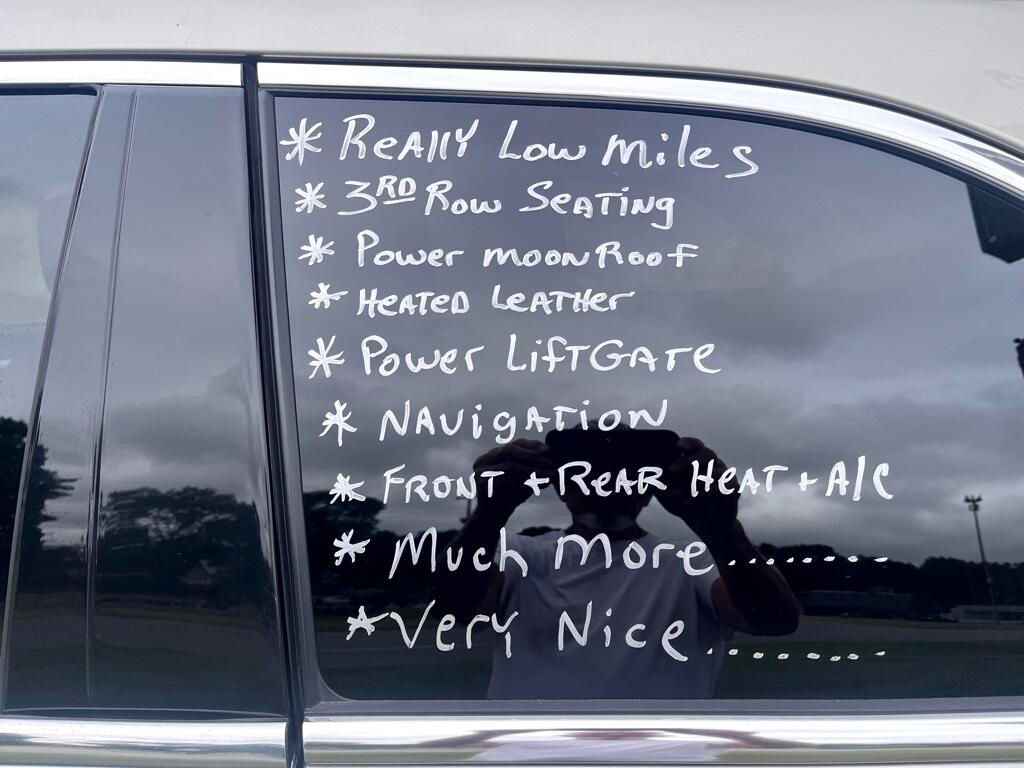 * Really Low Miles
* 3RD Row Seating
* Power moonRoof
* Heated Leather
* Power LiftGate
* Navigation
* Front + Rear Heat + A/C
* Much More.........
* Very Nice.........